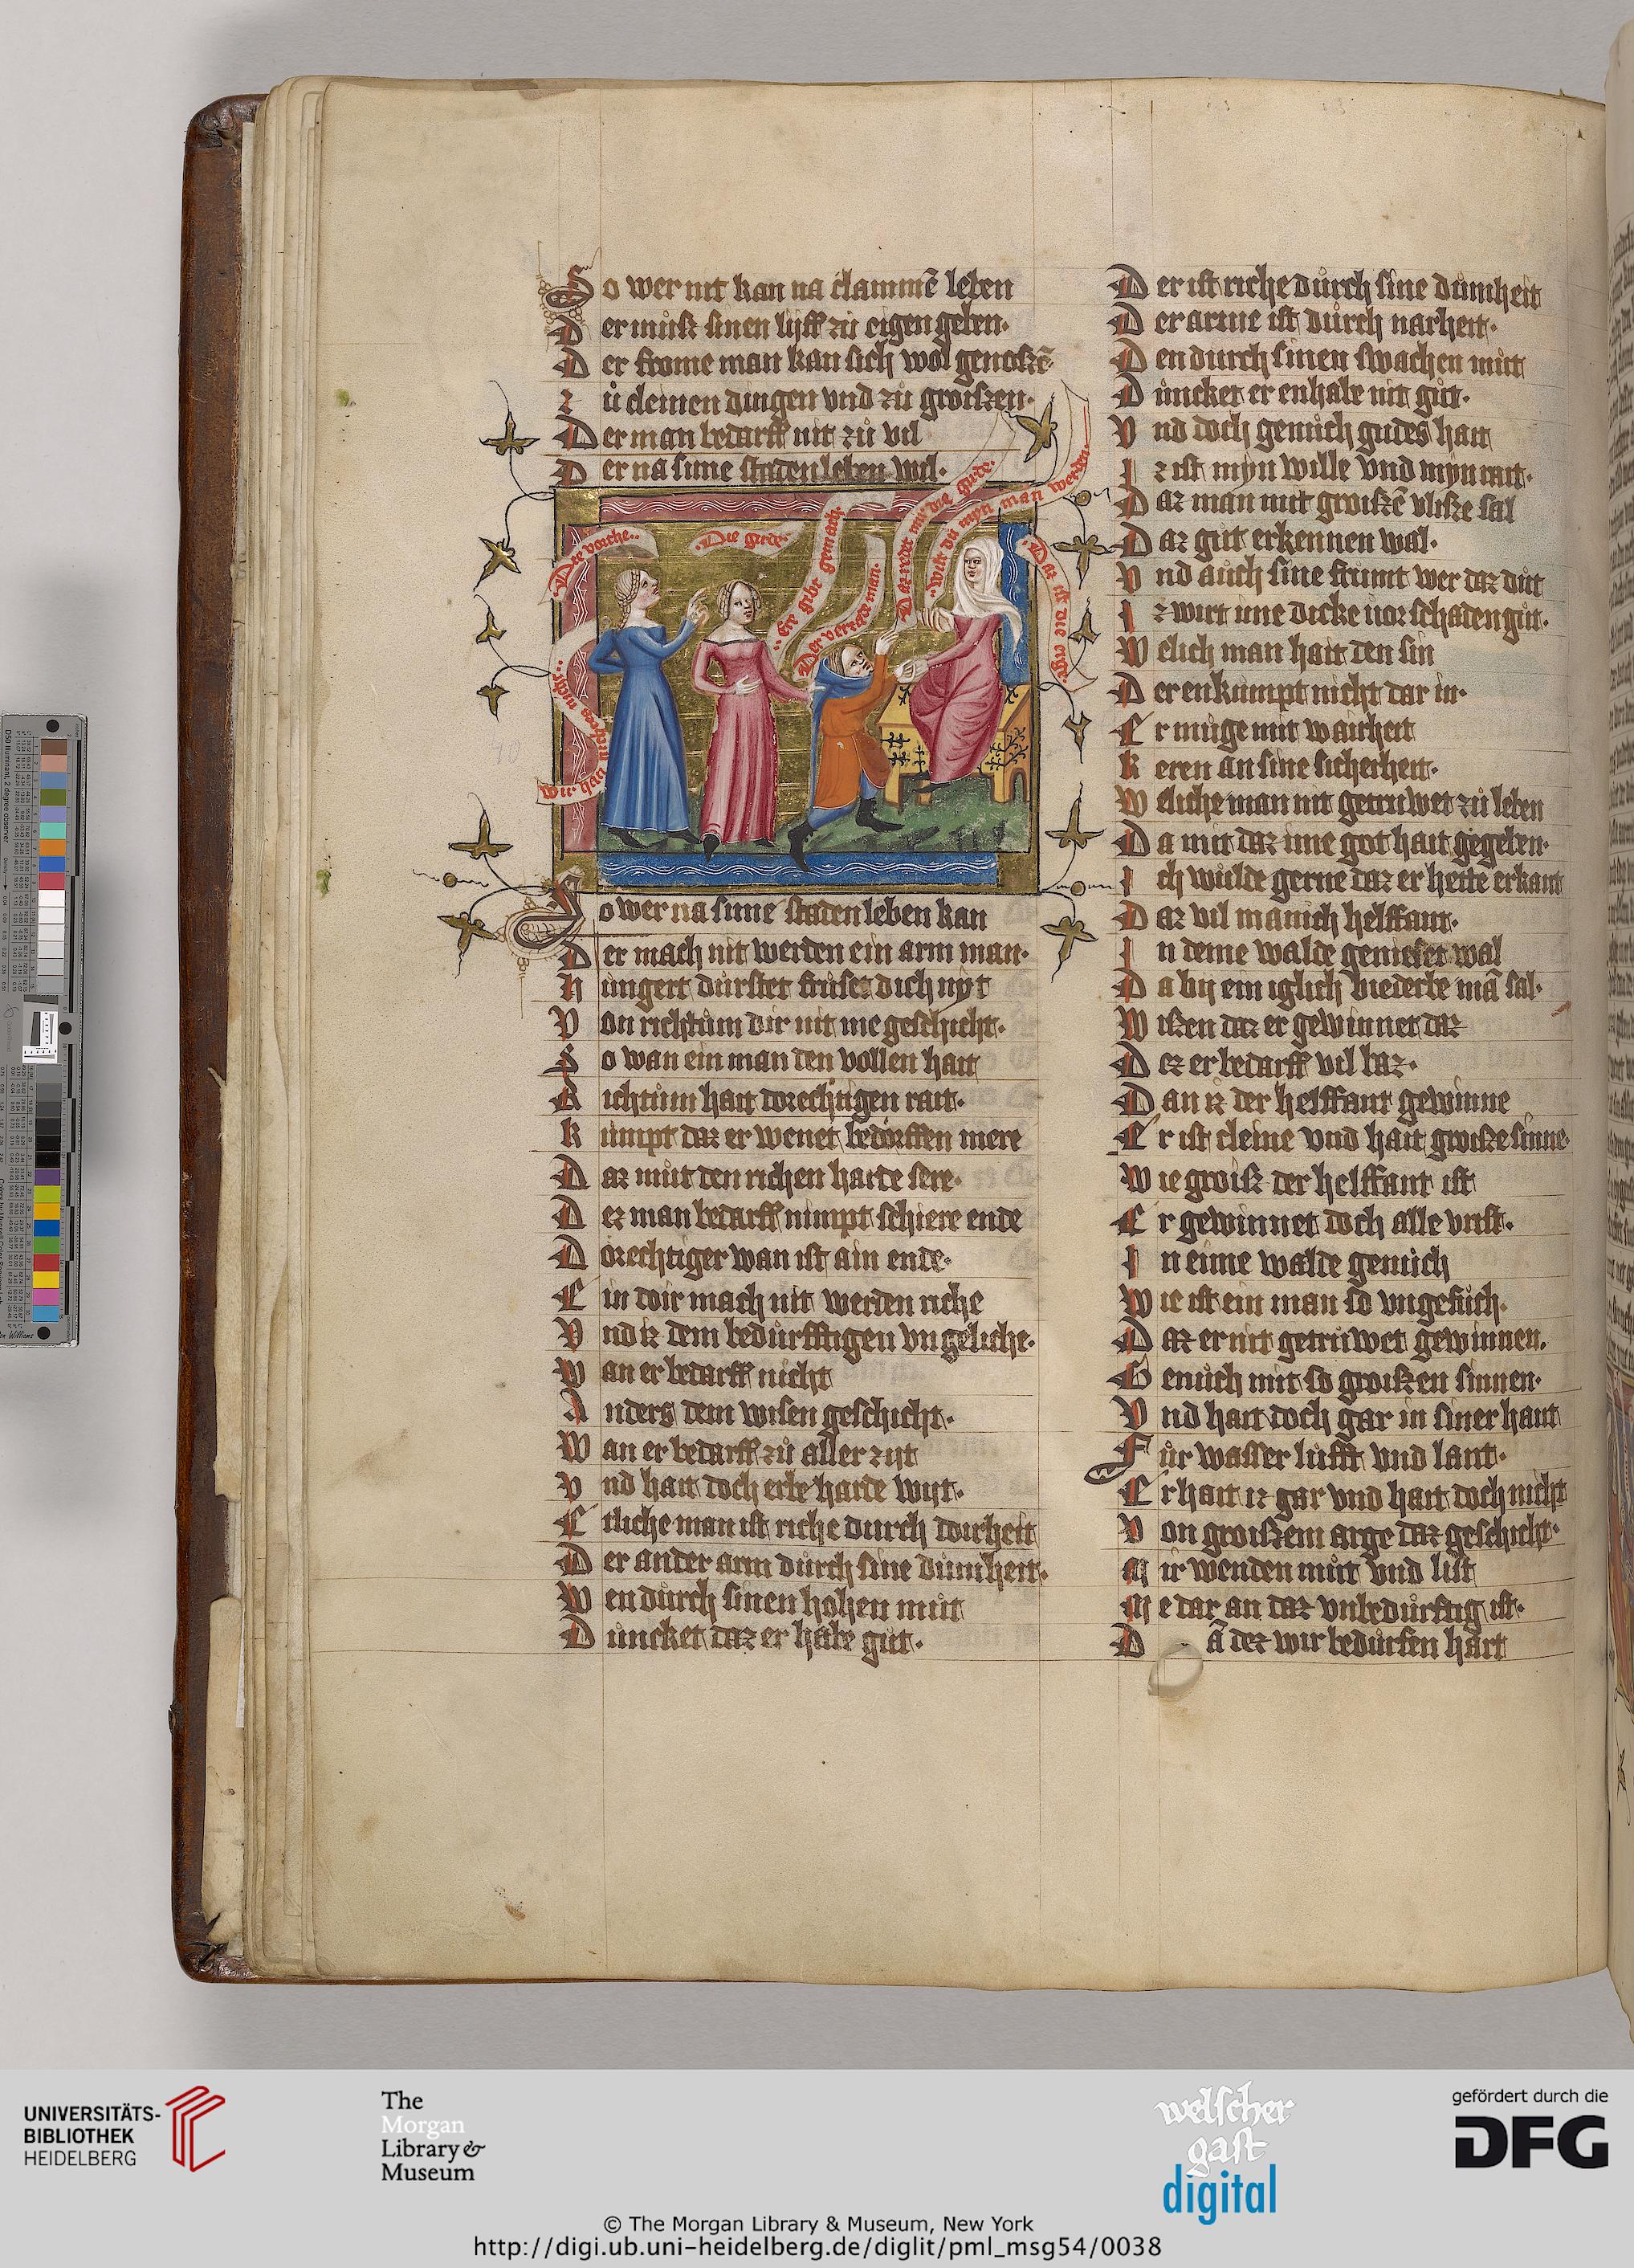 So wer nit kan na clammē leben
Der můß sinen lijff zů eigen geben.
Der frome man kan sich wol genoßē
Zů cleinen dingen vnd zů groißen.
Der man bedarff nit zů vil
Der na sime staden leben wil.
Der vorche..
Die girde.
Ere gibt gemach.
Der verzade man.
Daz redet mir die girde.
wilt du myn man werden.
Daz ist die erge.
wir han
So wer na sime staden leben kan
Der mach nit werden ein arm man.
Hungert dürstet früset dich nyt
Von richtům dir nit me geschicht.
So wan ein man den vollen hait
Richtům hait dorechtigen rait.
Kumpt daz er wenet bedorffen mere
Daz můt den richen harte sere.
Dez man bedarff nimpt schiere ende
Dorechtiger wan ist ain ende.
Ein doir mach nit werden riche
Vnd iz dem bedürfftigen vngeliche.
Wan er bedarff nicht
Anders dem wisen geschicht.
Wan er bedarff zů aller zijt
Vnd hait doch erbe harte wijt.
Etliche man ist riche durch doirheit
Der ander arm durch sine dümheit.
Wen durch sinen hohen můt
Důncket daz er habe gůt.
Der ist riche důrch sine důmheit
Der arme ist důrch narheit.
Den durch sinen swachen můt
Důncket er enhabe nit gůt.
Vnd doch genůch gudes hait
Iz ist myn wille vnd myn rait.
Daz man mit groißē vliße sal
Daz gůt erkennen wal.
Vnd aůch sine frumt wer daz důt
Iz wirt ime dicke vor schaden gůt.
Welich man hait den sin
Der enkumpt nicht dar in.
Er můge mit wairheit
Keren an sine sicherheit.
Weliche man nit getruwet zů leben
Da mit daz ime got hait gegeben.
Ich wůlde gerne daz er hette erkant
Daz vil manich helffant.
In deme walde genieset wal
Da bij ein iglich biederbe mā sal.
Wißen daz er gewinnet daz
Dez er bedarff vil baz.
Dan iz der helffant gewinne
Er ist cleine vnd hait groiße sinne.
Wie groiß der helffant ist
Er gewinnet doch alle vrist.
In eime walde genůch
Wie ist ein man so vngefůch.
Daz er nit getruwet gewinnen.
Genůch mit so groißen sinnen.
Vnd hait doch gar in siner hant
Für wasser lufft vnd lant.
Er hait iz gar vnd hait doch nicht
Von groißem arge daz geschicht.
Wir wenden můt vnd list
Me dar an daz vnbedürftig ist.
Dā dez wir bedürfen hart
UNIVERSITÄTS-
BIBLIOTHEK
HEIDELBERG
The
Morgan
Library &
Museum
welscher
gast
digital
gefördert durch die
DFG
© The Morgan Library & Museum, New York
http://digi.ub.uni-heidelberg.de/diglit/pml_msg54/0038